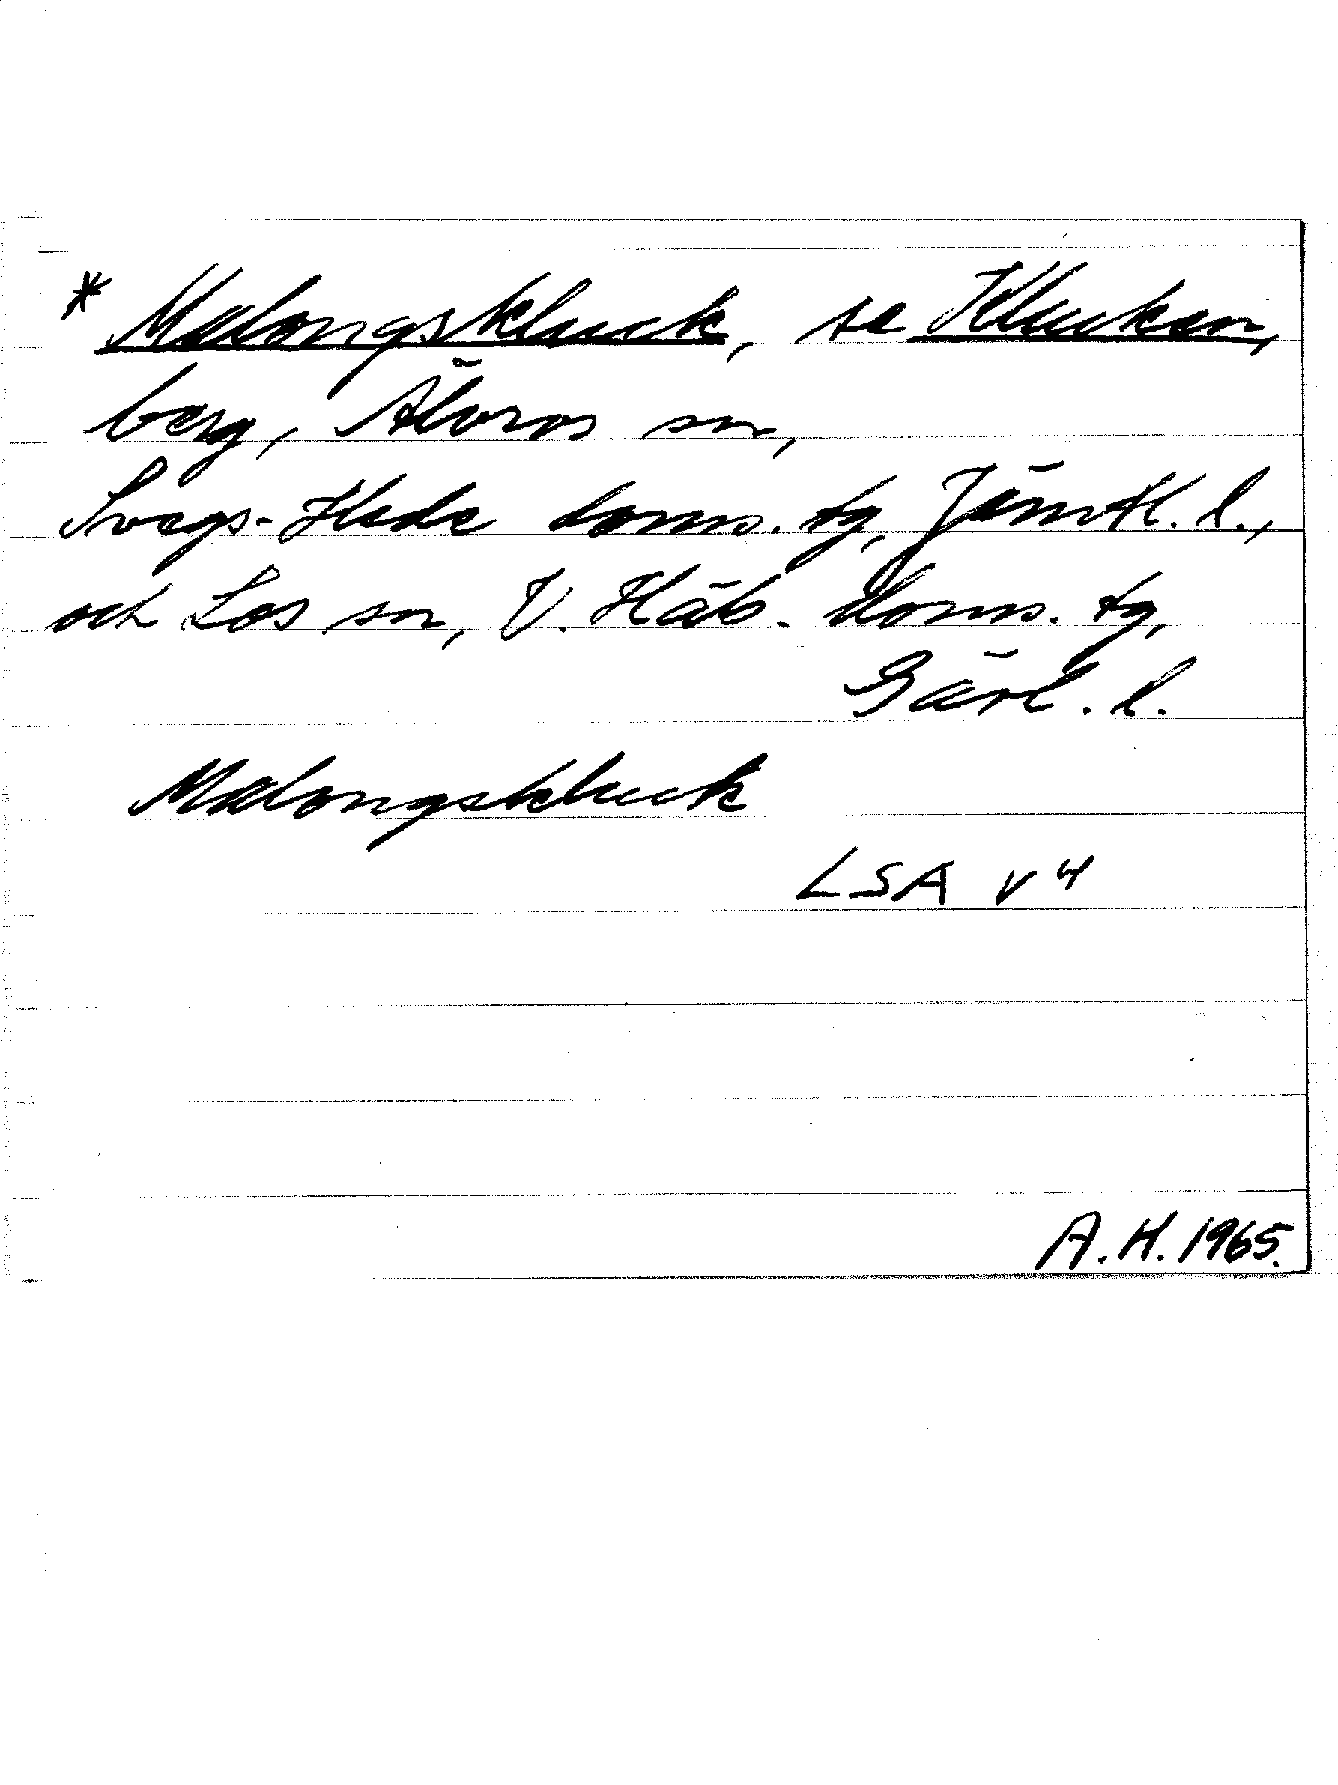 * Malongskluck, se Klucken,
berg, Älvros sn,
Svegs-Hede doms. tg, Jämtl. l.,
och Los sn, V. Häls. doms. tg,
Gävl. l.
Malongskluck
LSA V 4
A. H. 1965.